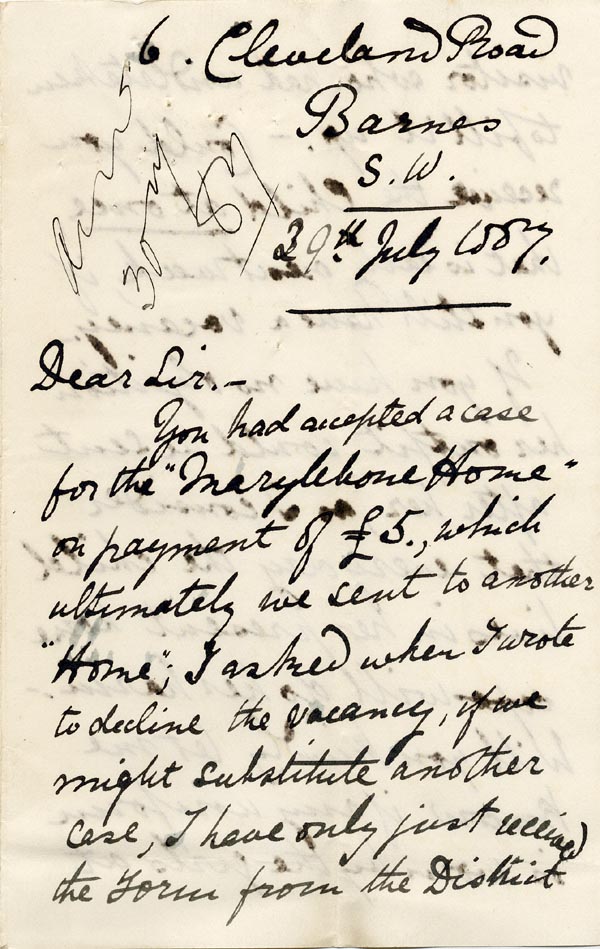 6. Cleveland Road
Barnes
S.W.
29th July 1887.
30 July
87
Dear Sir.-
You had accepted a case
for the "Marylebone Home"
on payment of £5., which
ultimately we sent to another
"Home"; I asked when I wrote
to decline the vacancy, if we
might substitute another
case, I have only just received
the Form from the District